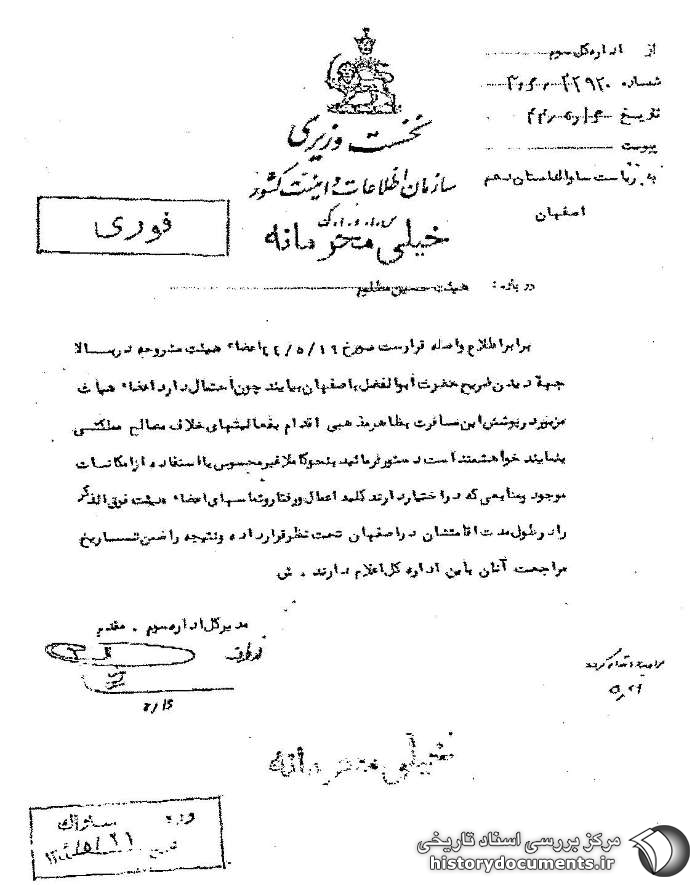 از اداره کل سوم
شماره
تاریخ
پیوست
نخست وزیری
سازمان اطلاعات و امنیت کشور
به ریاست ساواک استان دهم
اصفهان
فوری
خیلی محرمانه
درباره: هیئت حسین مظلوم
برابر اطلاع واصله قرار است مورخ ۴۴/۵/۱۹ اعضاء هیئت مشروحه در بالا
جهة دیدن ضریح حضرت ابوالفضل باصفهان بیایند چون احتمال دارد اعضاء هیات
مزبور در پوشش این مسافرت بظاهر مذهبی اقدام بفعالیتهای خلاف مصالح مملکتی
بنمایند خواهشمند است دستور فرمائید بنحو کاملا غیر محسوس با استفاده از امکانات
موجود و منابعی که در اختیار دارند کلیه اعمال و رفتار و تماسهای اعضاء هیئت فوق الذکر
را در طول مدت اقامتشان در اصفهان تحت نظر قرار داده و نتیجه را ضمن تاریخ
مراجعت آنان باین اداره کل اعلام دارند . ش
مدیر کل اداره سوم . مقدم
از طرف
خیلی محرمانه
ساواک
تاریخ
مرکز بررسی اسناد تاریخی
historydocuments.ir